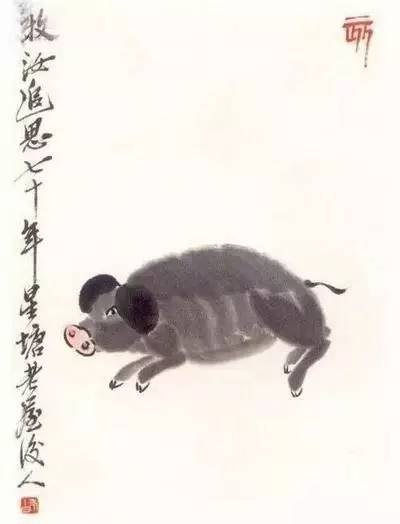 牧汝追思七十年星塘老屋后人